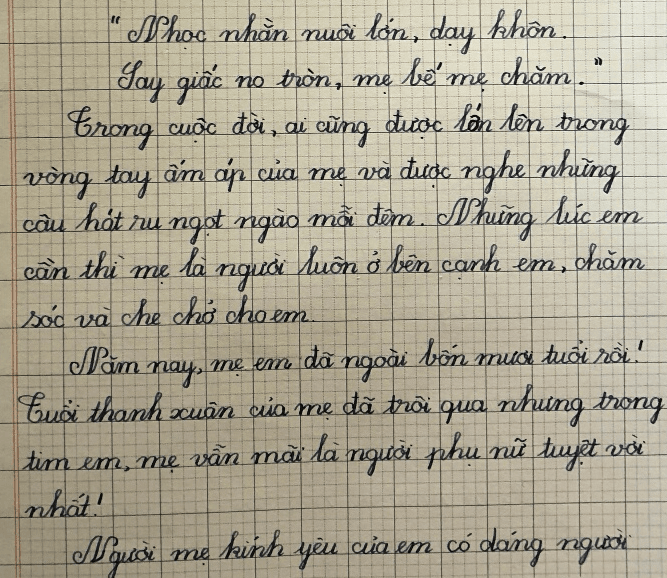 "Nhọc nhằn nuôi lớn, dạy khôn.
Say giấc no tròn, mẹ bế mẹ chăm."
Trong cuộc đời, ai cũng được lớn lên trong
vòng tay ấm áp của mẹ và được nghe những
câu hát ru ngọt ngào mỗi đêm. Những lúc em
cần thì mẹ là người luôn ở bên cạnh em, chăm
sóc và che chở cho em.
Năm nay, mẹ em đã ngoài bốn mươi tuổi rồi!
Tuổi thanh xuân của mẹ đã trôi qua nhưng trong
tim em, mẹ vẫn mãi là người phụ nữ tuyệt vời
nhất!
Người mẹ kính yêu của em có dáng người